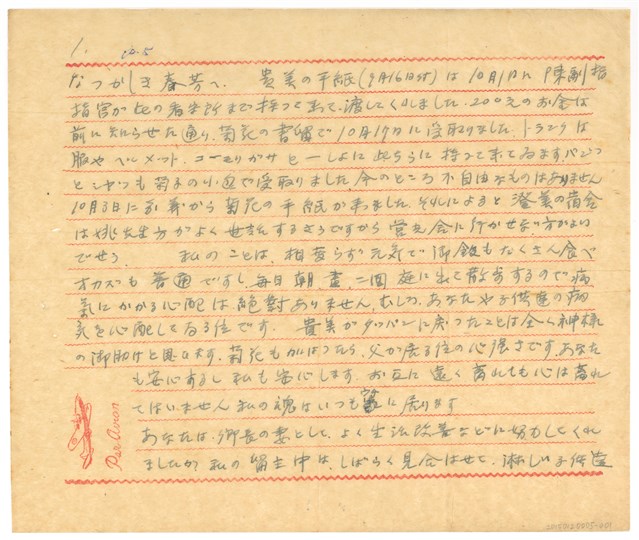 1. 42.5
なつかしき春芳へ. 貴美の手紙(9月16日付)は10月1日に陳副指
指官が此の看守所まで持って来て、渡してくれました. 200元のお金は
前に知らせた通り、菊花の書留で10月17日に受取りました. トランクは
服やヘルメット. コーモリがサと一しょに此ちらに持って来てゐます. パンツ
とシャツも菊子の小包で受取りました 今のところ不自由なものはありません
10月3日にお葬から菊花の手紙が来ました. それによると澄美の宿舎
は姚先生方がよく世話するさうですから営元会に行かせない方がよい
でせう. 私のことは、相変らず元気で御飯もたくさん食べ
オカズも普通ですし、毎日朝昼二回庭に出て散歩するので病
気にかかる心配は絶対ありません. むしろ、あなたや子供達の病
気を心配してゐる位です. 貴美がタッパンに戻ったことは全く神様
の御助けと思ひます. 菊花もがんばったら、父が居る位の心強さです. あなた
も安心するし私も安心します. お互に遠く離れても心は離れ
てはいません 私の魂はいつも家に居ります
あなたは、郷長の妻として、よく生活改善などに努力してくれ
ましたが 私の留主中は、しばらく見合はせて、淋しい子供達
Par Avion